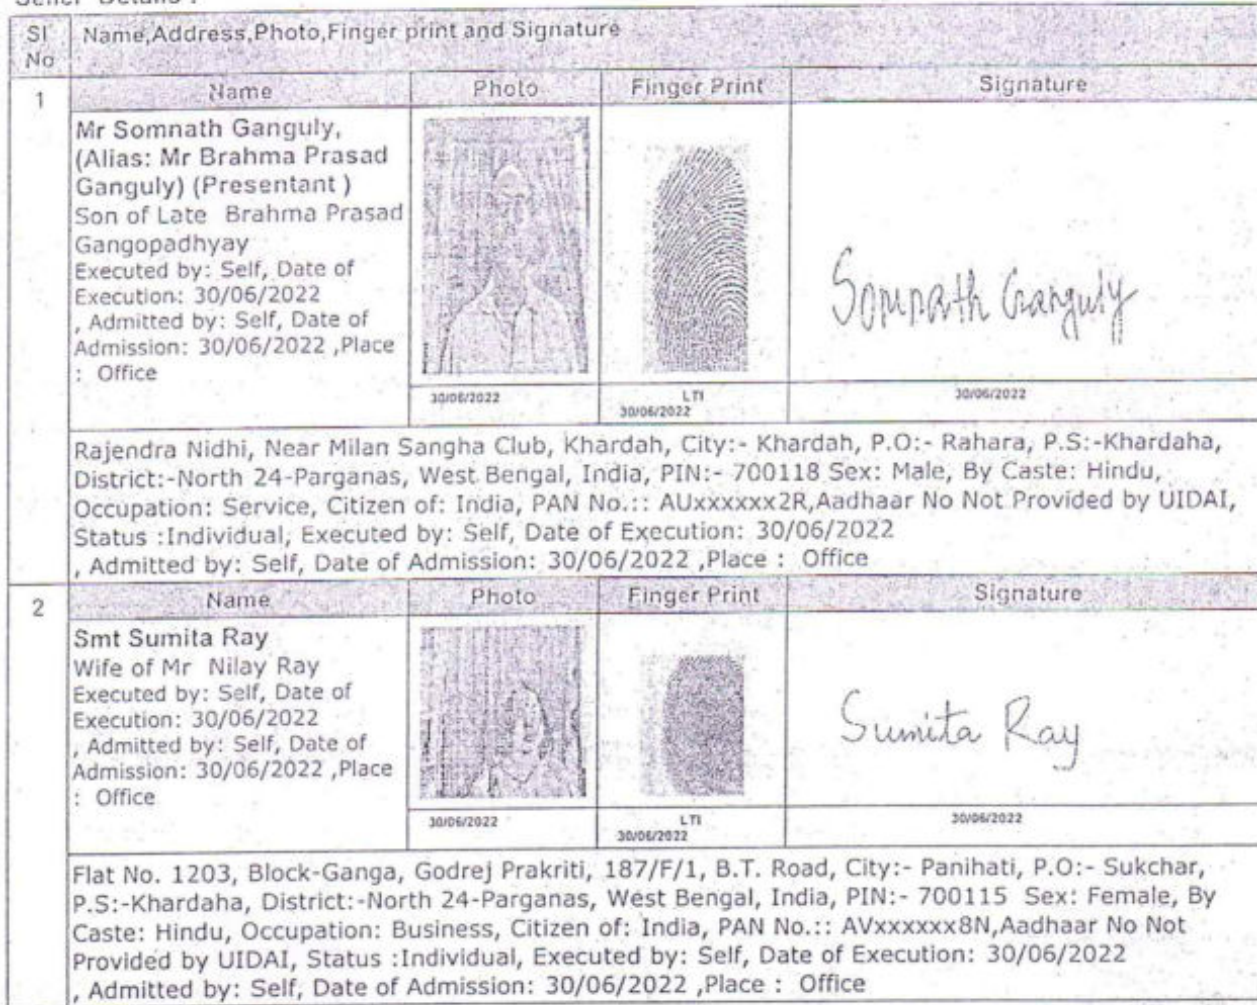 Seller Details :
Sl No
Name,Address,Photo,Finger print and Signature
1
Name
Photo
Finger Print
Signature
Mr Somnath Ganguly,
(Alias: Mr Brahma Prasad
Ganguly) (Presentant )
Son of Late Brahma Prasad
Gangopadhyay
Executed by: Self, Date of
Execution: 30/06/2022
, Admitted by: Self, Date of
Admission: 30/06/2022 ,Place
: Office
Somnath Ganguly
30/06/2022
LTI
30/06/2022
30/06/2022
Rajendra Nidhi, Near Milan Sangha Club, Khardah, City:- Khardah, P.O:- Rahara, P.S:-Khardaha,
District:-North 24-Parganas, West Bengal, India, PIN:- 700118 Sex: Male, By Caste: Hindu,
Occupation: Service, Citizen of: India, PAN No.:: AUxxxxxx2R,Aadhaar No Not Provided by UIDAI,
Status :Individual, Executed by: Self, Date of Execution: 30/06/2022
, Admitted by: Self, Date of Admission: 30/06/2022 ,Place : Office
2
Name
Photo
Finger Print
Signature
Smt Sumita Ray
Wife of Mr Nilay Ray
Executed by: Self, Date of
Execution: 30/06/2022
, Admitted by: Self, Date of
Admission: 30/06/2022 ,Place
: Office
Sumita Ray
30/06/2022
LTI
30/06/2022
30/06/2022
Flat No. 1203, Block-Ganga, Godrej Prakriti, 187/F/1, B.T. Road, City:- Panihati, P.O:- Sukchar,
P.S:-Khardaha, District:-North 24-Parganas, West Bengal, India, PIN:- 700115 Sex: Female, By
Caste: Hindu, Occupation: Business, Citizen of: India, PAN No.:: AVxxxxxx8N,Aadhaar No Not
Provided by UIDAI, Status :Individual, Executed by: Self, Date of Execution: 30/06/2022
, Admitted by: Self, Date of Admission: 30/06/2022 ,Place : Office